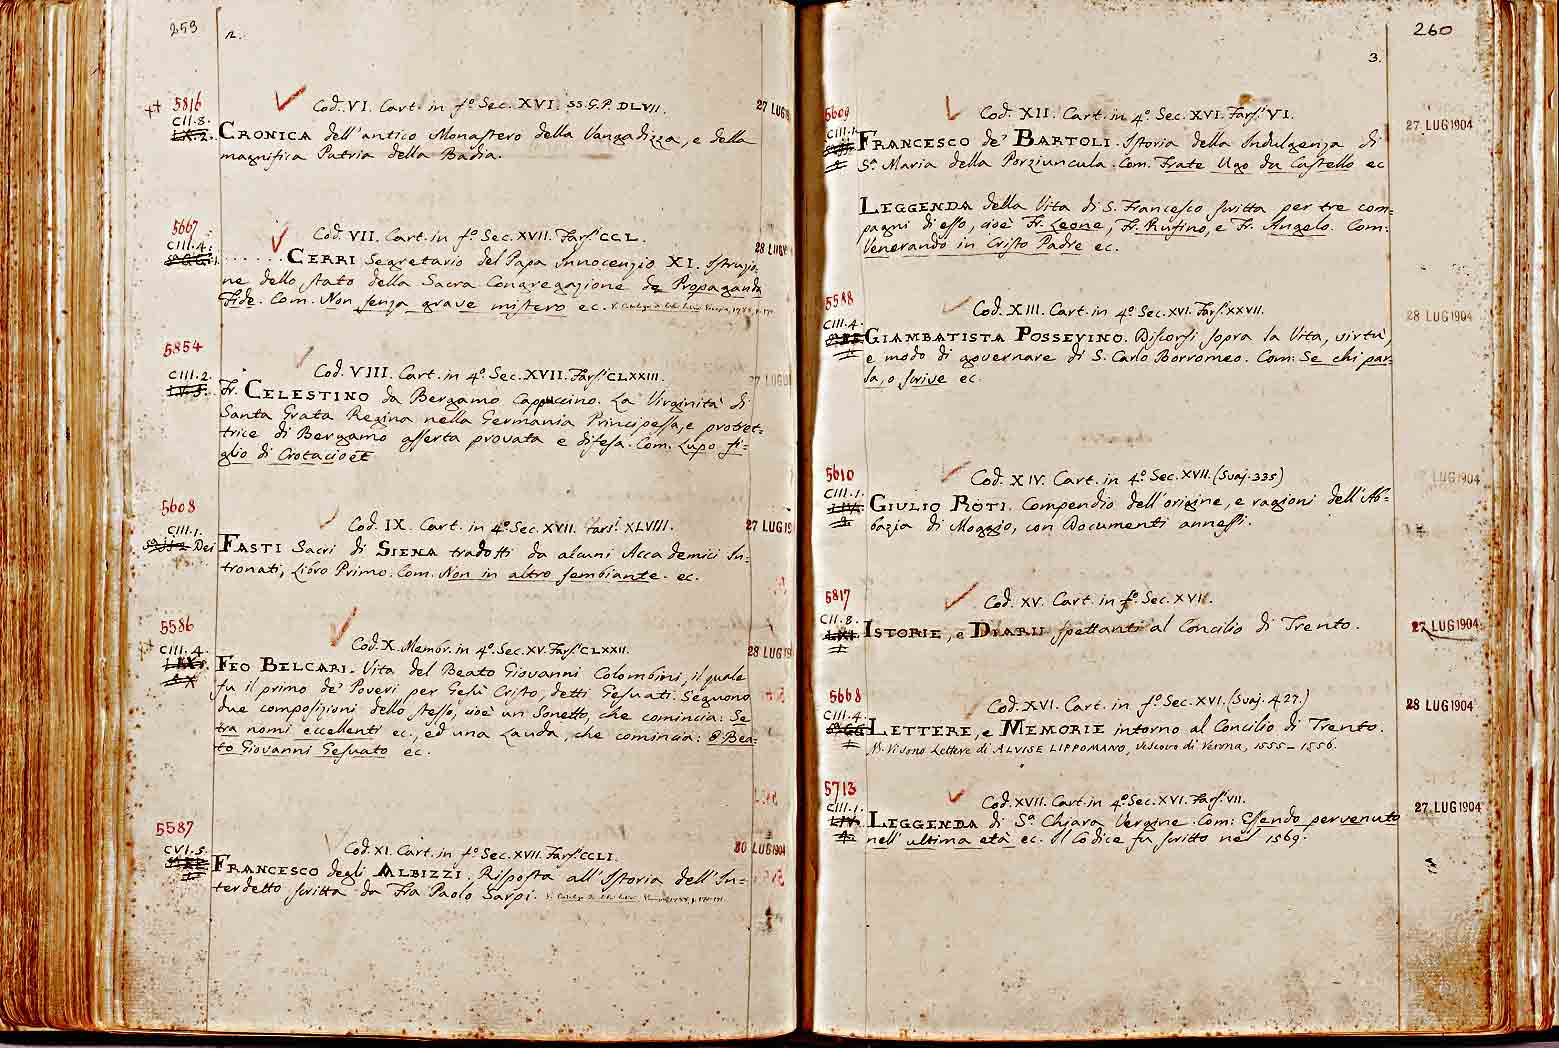 259
2.
5816
CII.8.
Cod. VI. Cart. in fº. Sec. XVI. SS.G.P. DLVII.
27 LUG
CRONICA dell'antico Monastero della Vangadizza, e della
magnifica Patria della Badia.
5667
CIII.4.
Cod. VII. Cart. in fº. Sec. XVII. Fars. CCL.
28 LUG
. . . . . . CERRI Segretario del Papa Innocenzio XI. Istruzio-
ne dello stato della Sacra Congregazione de Propaganda
Fide. Com. Non senza grave mistero ec.
5854
CIII.2.
Cod. VIII. Cart. in 4º. Sec. XVII. Fars. CLXXIII.
27 LUG
Fr. CELESTINO da Bergamo Cappuccino. La Virginità di
Santa Grata Regina nella Germania Principessa, e protet-
trice di Bergamo asserta provata e difesa. Com. Lupo fi-
glio di Crotacio et
5608
CIII.1.
Cod. IX. Cart. in 4º. Sec. XVII. Fars. XLVIII.
27 LUG 19
Dei FASTI Sacri di SIENA tradotti da alcuni Accademici In-
tronati, Libro Primo. Com. Non in altro sembiante. ec.
5586
CIII.4.
Cod. X. Membr. in 4º. Sec. XV. Fars. CLXXII.
28 LUG 19
FEO BELCARI. Vita del Beato Giovanni Colombini, il quale
fu il primo de' Poveri per Gesù Cristo, detti Gesuati. Seguono
due composizioni dello stesso, cioè un Sonetto, che comincia: Se
tra nomi eccellenti ec., ed una Lauda, che comincia: O Bea-
to Giovanni Gesuato ec.
5587
CVI.5.
Cod. XI. Cart. in fº. Sec. XVII. Fars. CCLI.
30 LUG 1904
FRANCESCO degli ALBIZZI. Risposta all'Istoria dell'In-
terdetto scritta da Fra Paolo Sarpi.
260
3.
5609
CIII.1.
Cod. XII. Cart. in 4º. Sec. XVI. Fars. VI.
27 LUG 1904
FRANCESCO de' BARTOLI. Istoria della Indulgenza di
Sª. Maria della Porziuncula. Com. Frate Ugo da Castello ec
LEGGENDA della Vita di S. Francesco scritta per tre com-
pagni di esso, cioè Fr. Leone, Fr. Rufino, e Fr. Angelo. Com:
Venerando in Cristo Padre ec.
5588
CIII.4.
Cod. XIII. Cart. in 4º. Sec. XVI. Fars. XXVII.
28 LUG 1904
GIAMBATISTA POSSEVINO. Discorsi sopra la Vita, virtù,
e modo di governare di S. Carlo Borromeo. Com: Se chi par-
la, o scrive ec.
5610
CIII.1.
Cod. XIV. Cart. in 4º. Sec. XVII. (Suaj. 335)
27 LUG 1904
GIULIO ROTI. Compendio dell'origine, e ragioni dell'Ab-
bazia di Moggio, con Documenti annessi.
5817
CII.8.
Cod. XV. Cart. in fº. Sec. XVI.
27 LUG 1904
ISTORIE, e DIARII spettanti al Concilio di Trento.
5668
CIII.4.
Cod. XVI. Cart. in fº. Sec. XVI. (Suaj. 427.)
28 LUG 1904
LETTERE, e MEMORIE intorno al Concilio di Trento.
N. Vi sono Lettere di ALVISE LIPPOMANO, Vescovo di Verona, 1555–1556.
5713
CIII.1.
Cod. XVII. Cart. in 4º. Sec. XVI. Fars. VII.
27 LUG 1904
LEGGENDA di Sª. Chiara Vergine. Com: Essendo pervenuto
nell'ultima età ec. Il Codice fu scritto nel 1569.